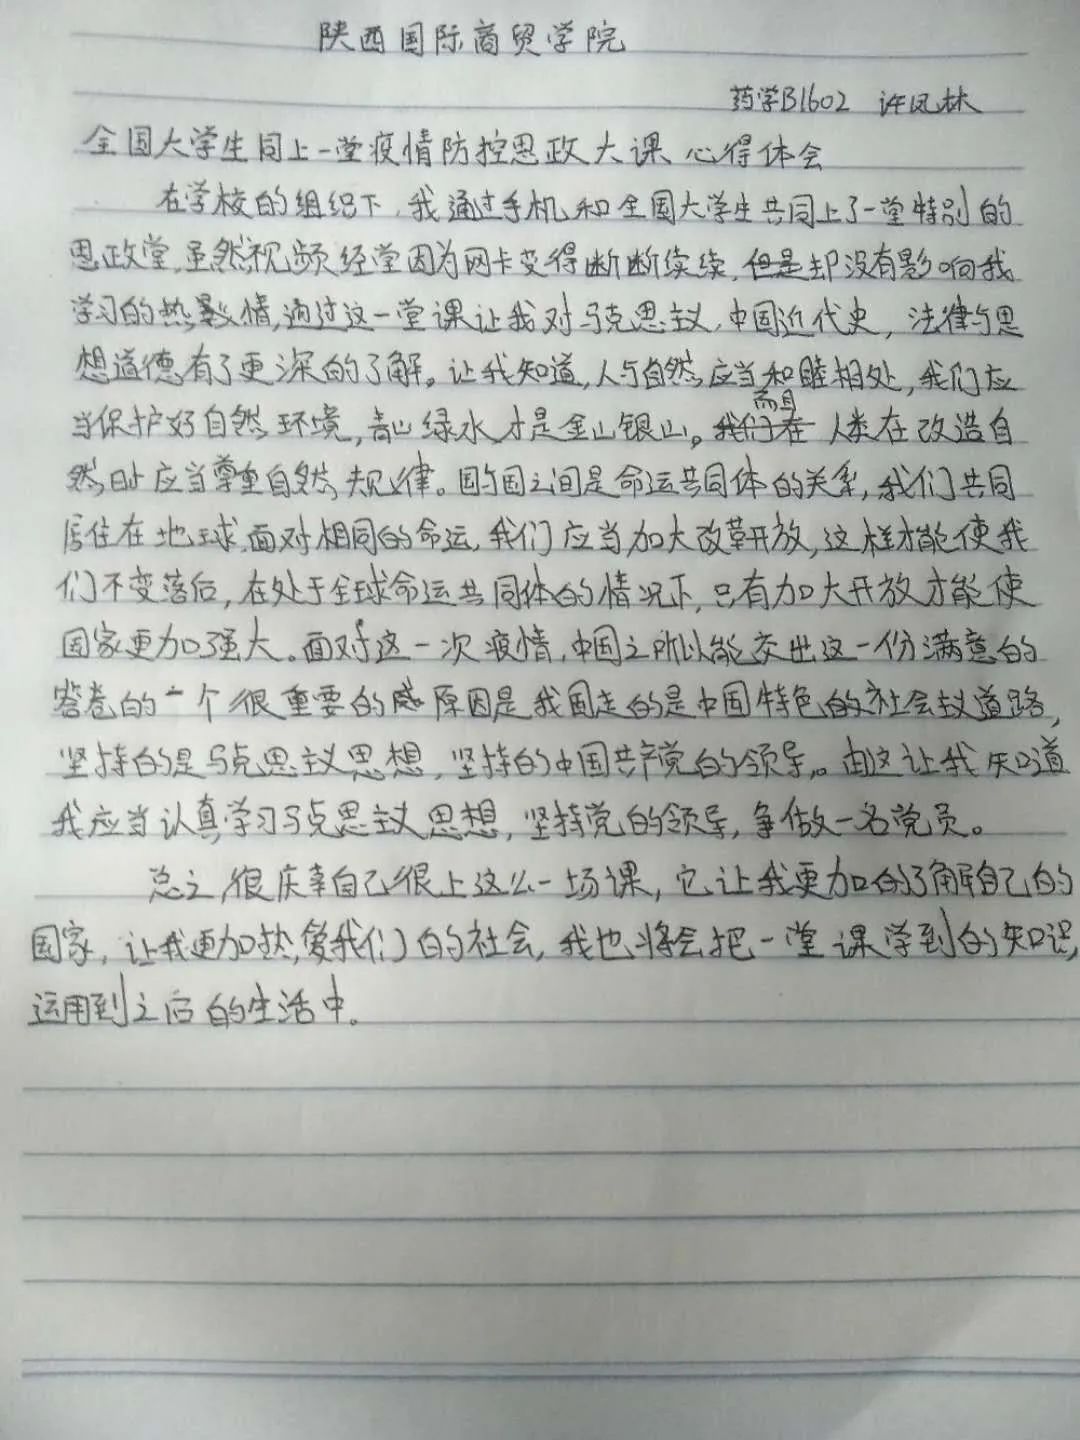 陕西国际商贸学院
药学B1602 许凤林
全国大学生同上一堂疫情防控思政大课 心得体会
在学校的组织下,我通过手机和全国大学生共同上了一堂特别的
思政堂,虽然视频经堂因为网卡变得断断续续,但是却没有影响我
学习的热情,通过这一堂课让我对马克思主义,中国近代史,法律与思
想道德有了更深的了解。让我知道,人与自然应当和睦相处,我们应
当保护好自然环境,青山绿水才是金山银山。而且人类在改造自
然时应当尊重自然规律。国与国之间是命运共同体的关系,我们共同
居住在地球,面对相同的命运,我们应当加大改革开放,这样才能使我
们不变落后,在处于全球命运共同体的情况下,只有加大开放才能使
国家更加强大。面对这一次疫情,中国之所以能交出这一份满意的
答卷的一个很重要的原因是我国走的是中国特色的社会主义道路,
坚持的是马克思主义思想,坚持的中国共产党的领导。由这让我知道
我应当认真学习马克思主义思想,坚持党的领导,争做一名党员。
总之,很庆幸自己很上这么一场课,它让我更加的了解自己的
国家,让我更加热爱我们的社会,我也将会把一堂课学到的知识,
运用到之后的生活中。